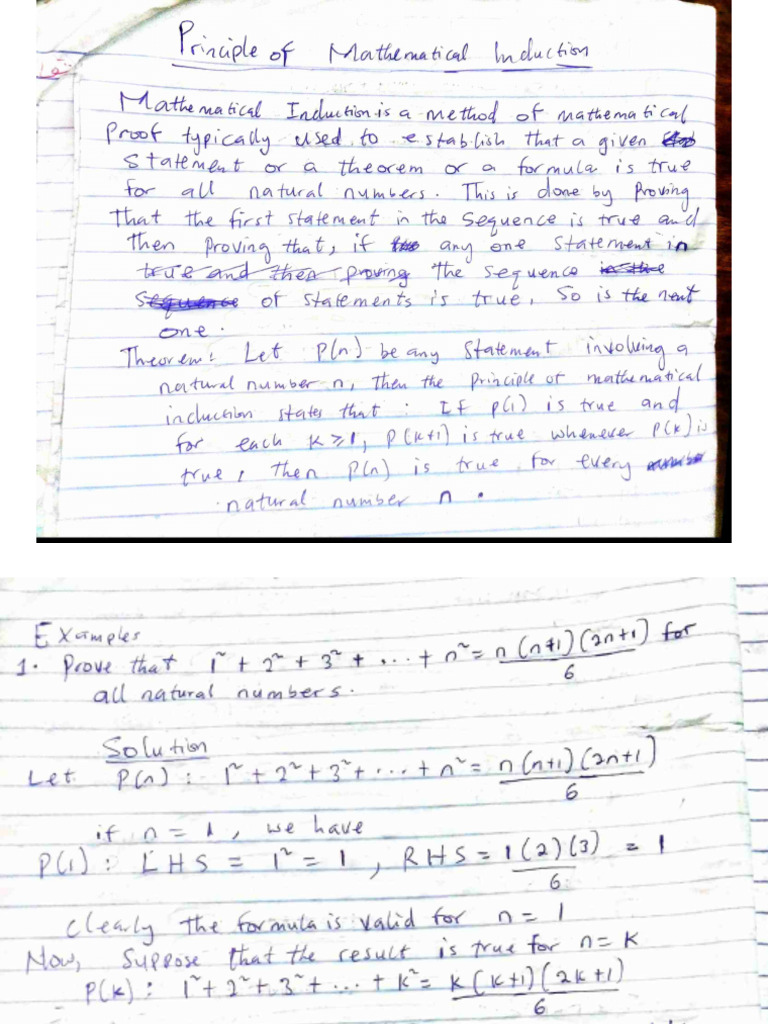 Principle of Mathematical Induction
Mathematical Induction is a method of mathematical
Proof typically used to establish that a given
Statement or a theorem or a formula is true
for all natural numbers. This is done by Proving
That the first statement in the sequence is true and
then proving that, if any one statement in
true and then proving the sequence in the
Sequence of statements is true, so is the next
one.
Theorem: Let P(n) be any statement involving a
natural number n, then the principle of mathematical
induction states that : If p(1) is true and
for each k ≥ 1, P(k+1) is true whenever P(k) is
true, then P(n) is true for every number
natural number n.
Examples
1. Prove that 1² + 2² + 3² + ... + n² = n(n+1)(2n+1)/6 for
all natural numbers.
Solution
Let P(n) : 1² + 2² + 3² + ... + n² = n(n+1)(2n+1)/6
if n = 1, we have
P(1) : LHS = 1² = 1, RHS = 1(2)(3)/6 = 1
Clearly the formula is valid for n = 1
Now, Suppose that the result is true for n = k
P(k) : 1² + 2² + 3² + ... + k² = k(k+1)(2k+1)/6